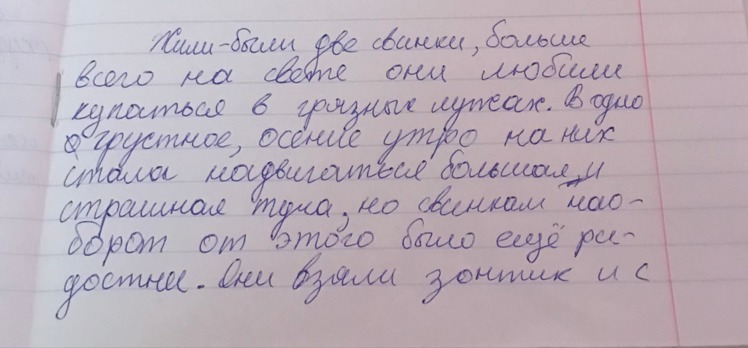 Жили-были две свинки, больше
всего на свете они любили
купаться в грязных лужах. В одно
грустное, осенне утро на них
стала надвигаться большая и
страшная туча, но свинкам нао-
борот от этого было ещё ра-
достнее. Они взяли зонтик и с